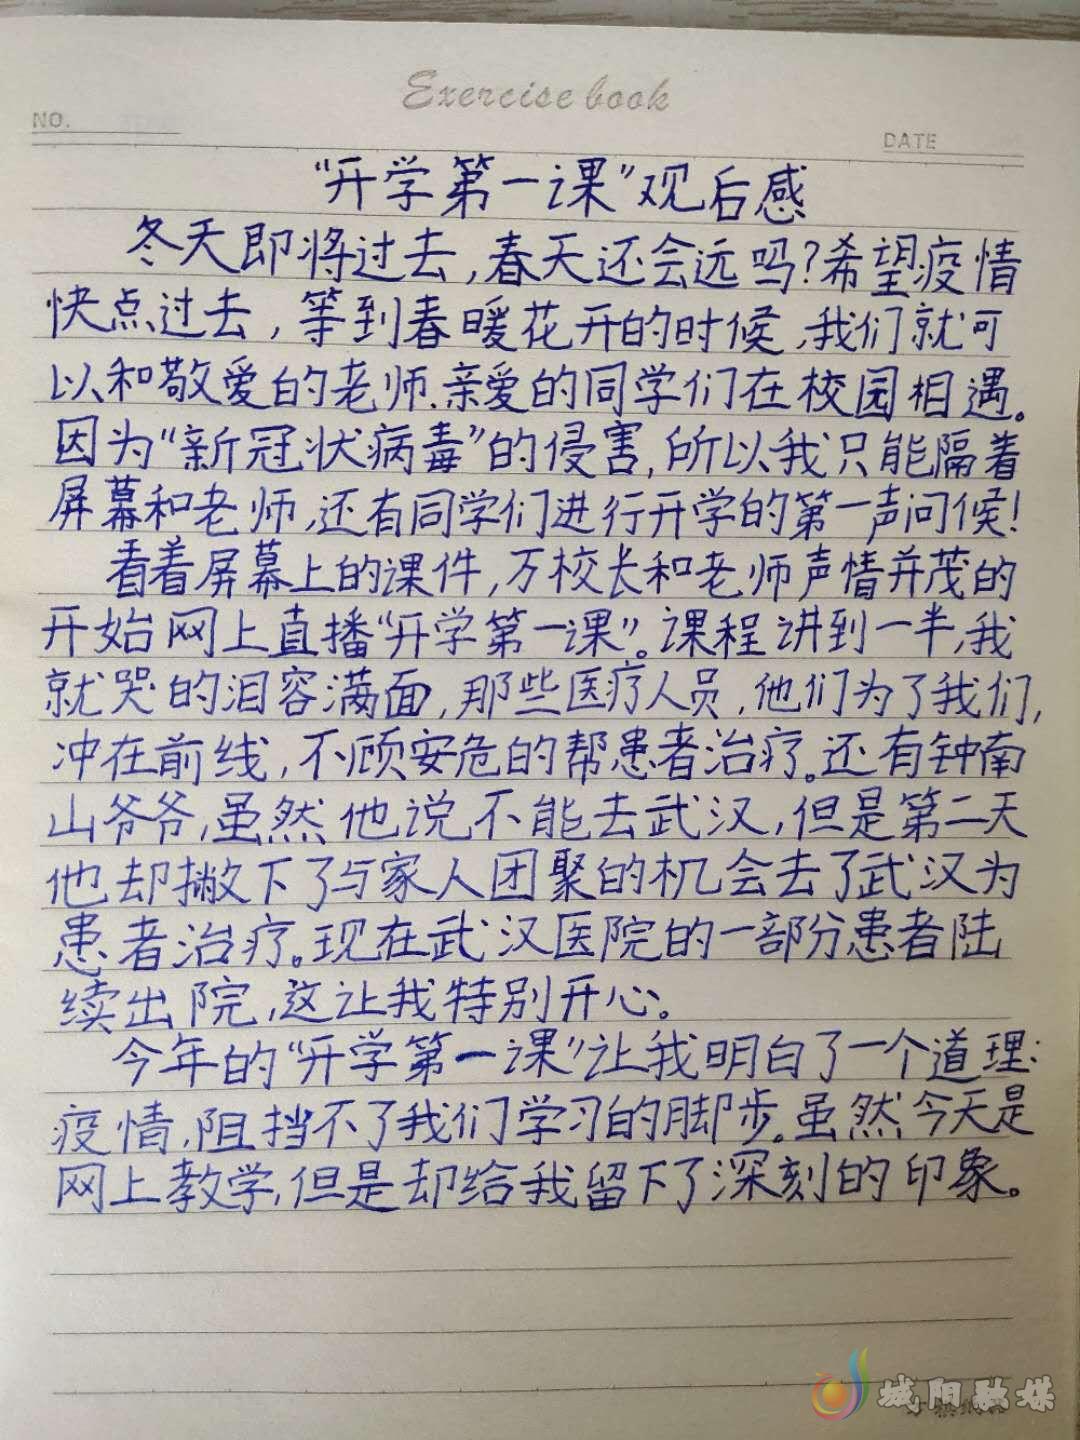 Exercise book
NO.
DATE
“开学第一课”观后感
冬天即将过去,春天还会远吗?希望疫情
快点过去,等到春暖花开的时候,我们就可
以和敬爱的老师、亲爱的同学们在校园相遇。
因为“新冠状病毒”的侵害,所以我只能隔着
屏幕和老师,还有同学们进行开学的第一声问候!
看着屏幕上的课件,万校长和老师声情并茂的
开始网上直播“开学第一课”。课程讲到一半,我
就哭的泪容满面,那些医疗人员,他们为了我们,
冲在前线,不顾安危的帮患者治疗。还有钟南
山爷爷,虽然他说不能去武汉,但是第二天
他却撇下了与家人团聚的机会去了武汉为
患者治疗。现在武汉医院的一部分患者陆
续出院,这让我特别开心。
今年的“开学第一课”让我明白了一个道理:
疫情,阻挡不了我们学习的脚步。虽然今天是
网上教学,但是却给我留下了深刻的印象。
城阳融媒